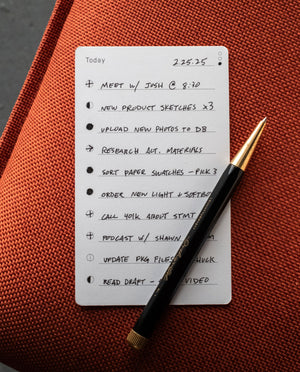 Today 2.25.25
MEET W/ JOSH @ 8:30
NEW PRODUCT SKETCHES x3
UPLOAD NEW PHOTOS TO DB
RESEARCH ALT. MATERIALS
SORT PAPER SWATCHES - PICK 3
ORDER NEW LIGHT + SOFTBO
CALL 401K ABOUT STMT
PODCAST W/ SHAWN
UPDATE PKG FILES
READ DRAFT - VIDEO